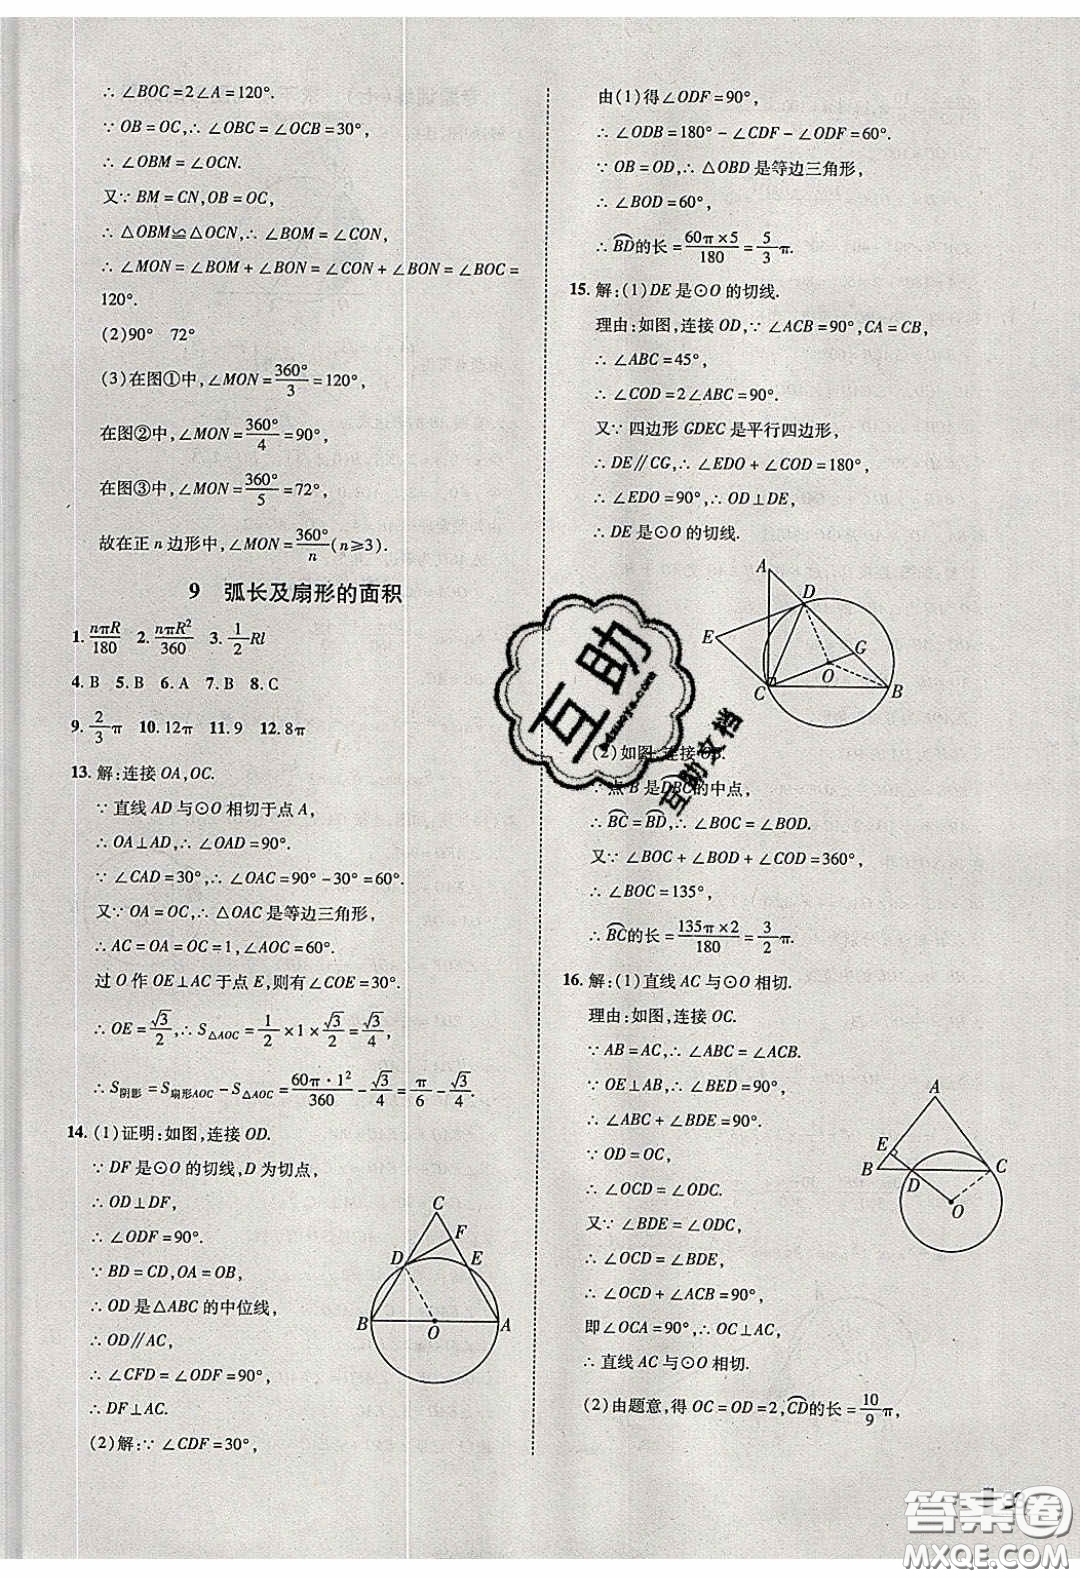 ∴ ∠BOC=2∠A=120°.
∵ OB=OC,∴ ∠OBC=∠OCB=30°,
∴ ∠OBM=∠OCN.
又∵ BM=CN,OB=OC,
∴ △OBM≌△OCN,∴ ∠BOM=∠CON,
∴ ∠MON=∠BOM+∠BON=∠CON+∠BON=∠BOC=
120°.
(2)90° 72°
(3)在图①中,∠MON=360°/3=120°,
在图②中,∠MON=360°/4=90°,
在图③中,∠MON=360°/5=72°,
故在正 n 边形中,∠MON=360°/n(n≥3).
9 弧长及扇形的面积
1. nπR/180 2. nπR²/360 3. 1/2 Rl
4. B 5. B 6. A 7. B 8. C
9. 2/3 π 10. 12π 11. 9 12. 8π
13. 解:连接 OA,OC.
∵ 直线 AD 与⊙O 相切于点 A,
∴ OA⊥AD,∴ ∠OAD=90°.
∵ ∠CAD=30°,∴ ∠OAC=90°-30°=60°.
又∵ OA=OC,∴ △OAC 是等边三角形,
∴ AC=OA=OC=1,∠AOC=60°.
过 O 作 OE⊥AC 于点 E,则有∠COE=30°.
∴ OE=√3/2,∴ S△AOC=1/2×1×√3/2=√3/4,
∴ S阴影=S扇形AOC-S△AOC=60π·1²/360-√3/4=π/6-√3/4.
14. (1)证明:如图,连接 OD.
∵ DF 是⊙O 的切线,D 为切点,
∴ OD⊥DF,
∴ ∠ODF=90°.
∵ BD=CD,OA=OB,
∴ OD 是△ABC 的中位线,
∴ OD∥AC,
∴ ∠CFD=∠ODF=90°,
∴ DF⊥AC.
(2)解:∵ ∠CDF=30°,
C
F
D
E
B
O
A
由(1)得∠ODF=90°,
∴ ∠ODB=180°-∠CDF-∠ODF=60°.
∵ OB=OD,∴ △OBD 是等边三角形,
∴ ∠BOD=60°,
∴ BD⌒的长=60π×5/180=5/3 π.
15. 解:(1)DE 是⊙O 的切线.
理由:如图,连接 OD,∵ ∠ACB=90°,CA=CB,
∴ ∠ABC=45°,
∴ ∠COD=2∠ABC=90°.
又∵ 四边形 GDEC 是平行四边形,
∴ DE∥CG,∴ ∠EDO+∠COD=180°,
∴ ∠EDO=90°,∴ OD⊥DE,
∴ DE 是⊙O 的切线.
A
D
E
G
O
C
B
(2)如图,连接 OB.
∵ 点 B 是DBC⌒的中点,
∴ BC⌒=BD⌒,∴ ∠BOC=∠BOD.
又∵ ∠BOC+∠BOD+∠COD=360°,
∴ ∠BOC=135°,
∴ BC⌒的长=135π×2/180=3/2 π.
16. 解:(1)直线 AC 与⊙O 相切.
理由:如图,连接 OC.
∵ AB=AC,∴ ∠ABC=∠ACB.
∵ OE⊥AB,∴ ∠BED=90°,
∴ ∠ABC+∠BDE=90°.
∵ OD=OC,
∴ ∠OCD=∠ODC.
又∵ ∠BDE=∠ODC,
∴ ∠OCD=∠BDE,
∴ ∠OCD+∠ACB=90°,
即∠OCA=90°,∴ OC⊥AC,
∴ 直线 AC 与⊙O 相切.
(2)由题意,得 OC=OD=2,CD⌒的长=10/9 π,
A
E
B
D
C
O
互助
互助文档
答案圈
MXQE.COM